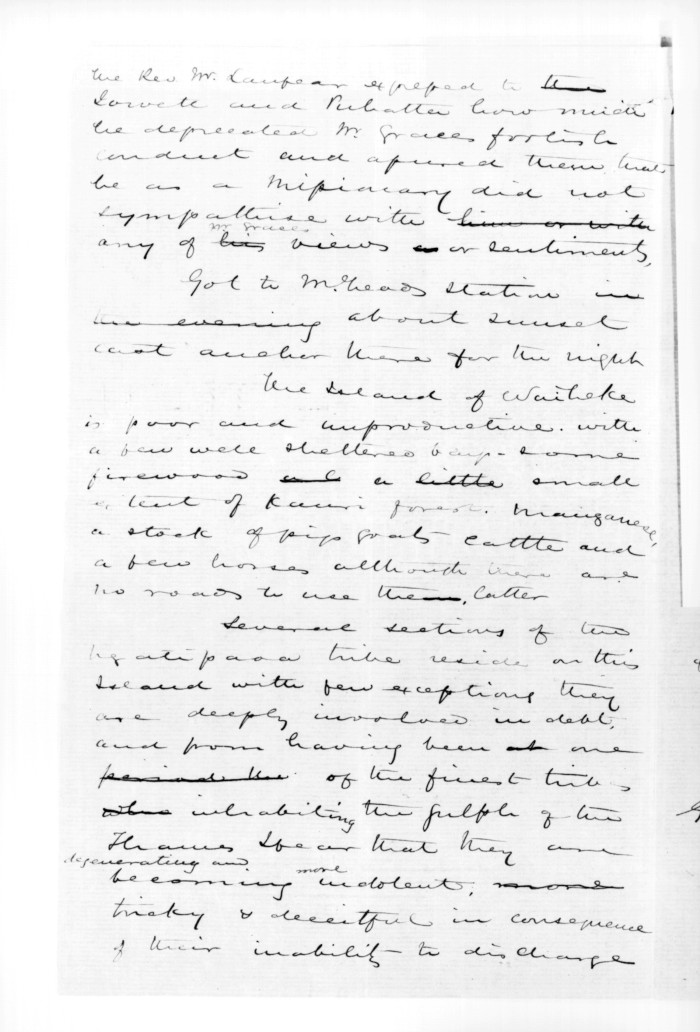 the Rev Mr. Lanfear expressed to the
Lowell and Puhatta how much
he deprecated Mr. Graces foolish
conduct and assured them that
he as a Missionary did not
sympathise with him or with
Mr Graces
any of his views a or sentiments,
Got to McLeods station in
the evening about sunset
cast anchor there for the night
The Island of Waiheke
is poor and unproductive. with
a few well sheltered bays - some
firewood and a little small
extent of Kauri forest. Manganese,
a stock of pigs goats cattle and
a few horses although there are
no roads to use them, latter
Several sections of the
Ngatipaoa tribe reside on this
Island with few exceptions they
are deeply involved in debt,
and from having been at one
period the of the finest tribes
who inhabiting the gulph of the
Thames I fear that they are
degenerating and
becoming more indolent, more
tricky & deceitful in consequence
of their inability to discharge